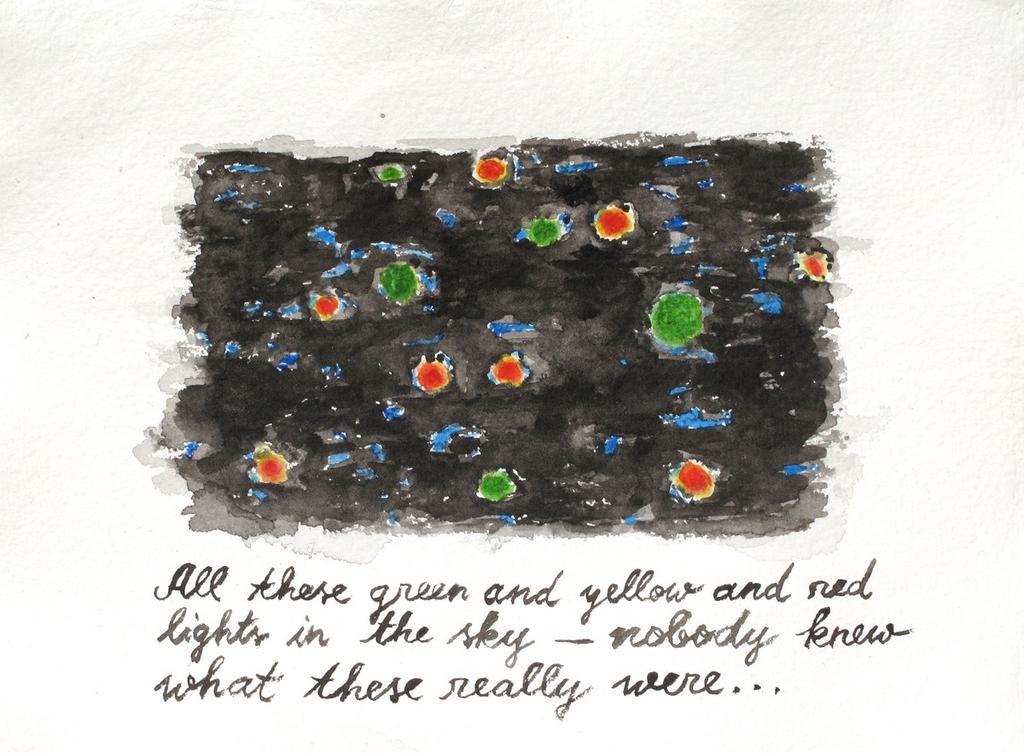 All these green and yellow and red
lights in the sky – nobody knew
what these really were...